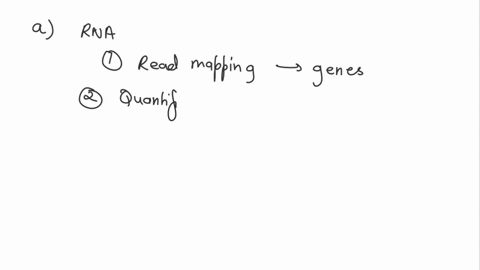 a) RNA
① Read mapping → genes
② Quantif